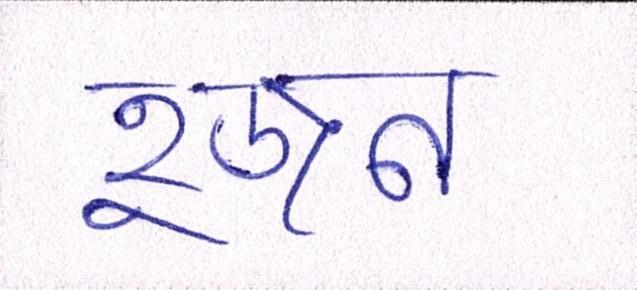 হূজন